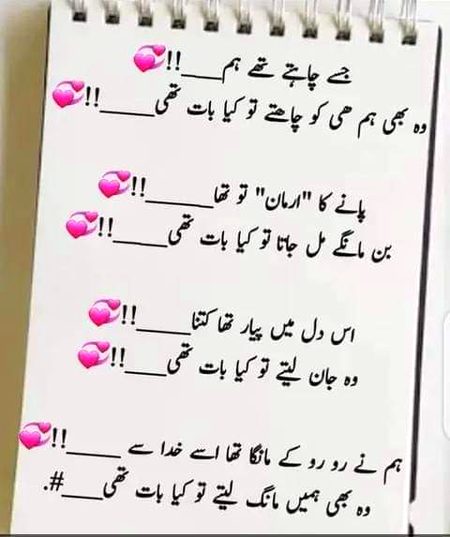 جسے چاہتے تھے ہم____!!💞
وہ بھی ہم ھی کو چاھتے تو کیا بات تھی____!!💞
پانے کا "ارمان" تو تھا_____!!💞
بن مانگے مل جاتا تو کیا بات تھی____!!💞
اس دل میں پیار تھا کتنا____!!💞
وہ جان لیتے تو کیا بات تھی____!!💞
ہم نے رو رو کے مانگا تھا اسے خدا سے ____!!💞
وہ بھی ہمیں مانگ لیتے تو کیا بات تھی___#.